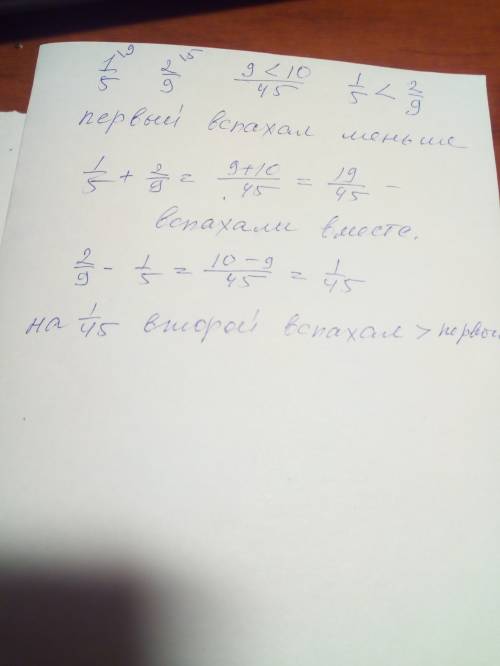 1/5 \9 2/9 \5 9 < 10/45 1/5 < 2/9
первый вспахал меньше
1/5 + 2/9 = 9+10/45 = 19/45 –
вспахали вместе.
2/9 - 1/5 = 10-9/45 = 1/45
на 1/45 второй вспахал >